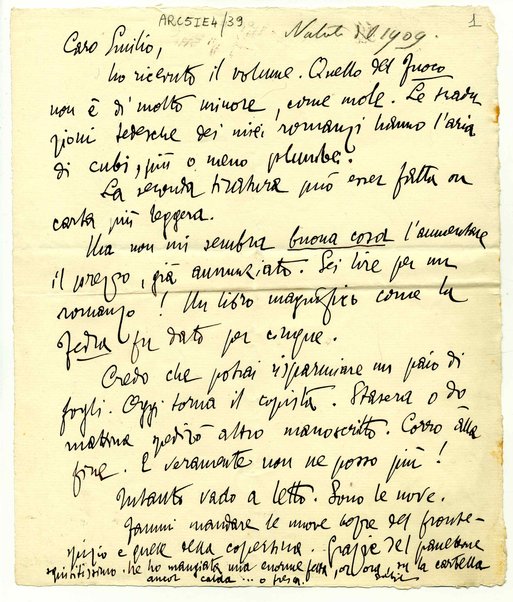 ARC5IE4/39
1
Natale del 1909.
Caro Emilio,
ho ricevuto il volume. Quello del Fuoco
non è di molto minore, come mole. Le tradu
zioni tedesche dei miei romanzi hanno l'aria
di cubi, più o meno plumbei.
La seconda tiratura può esser fatta su
carta più leggera.
Ma non mi sembra buona cosa l'aumentare
il prezzo, già annunziato. Sei lire per un
romanzo! Un libro magnifico come la
Fedra fu dato per cinque.
Credo che potrai risparmiare un paio di
fogli. Oggi torna il copista. Stasera o do
mattina spedirò altro manoscritto. Corro alla
fine. E veramente non ne posso più!
Intanto vado a letto. Sono le nove.
Fammi mandare le nuove copie del fronte-
spizio e quelle della copertina. Grazie del panettone
squisitissimo. Ne ho mangiata una enorme fetta, or ora, su la cartella
ancor calda ... o fresca.